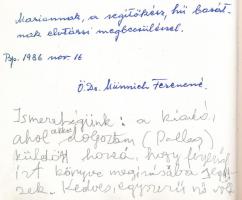 Mariannak, a segítőkész, hű barát-
nak elvtársi megbecsüléssel.
Bp. 1986 nov. 16
Ö. Dr. Münnich Ferencné.
Ismeretségünk: a kiadó,
ahol akkor dolgoztam (Pallas)
küldött hozzá, hogy
írt könyve megírásában
zek. Kedves, egyszerű nő volt